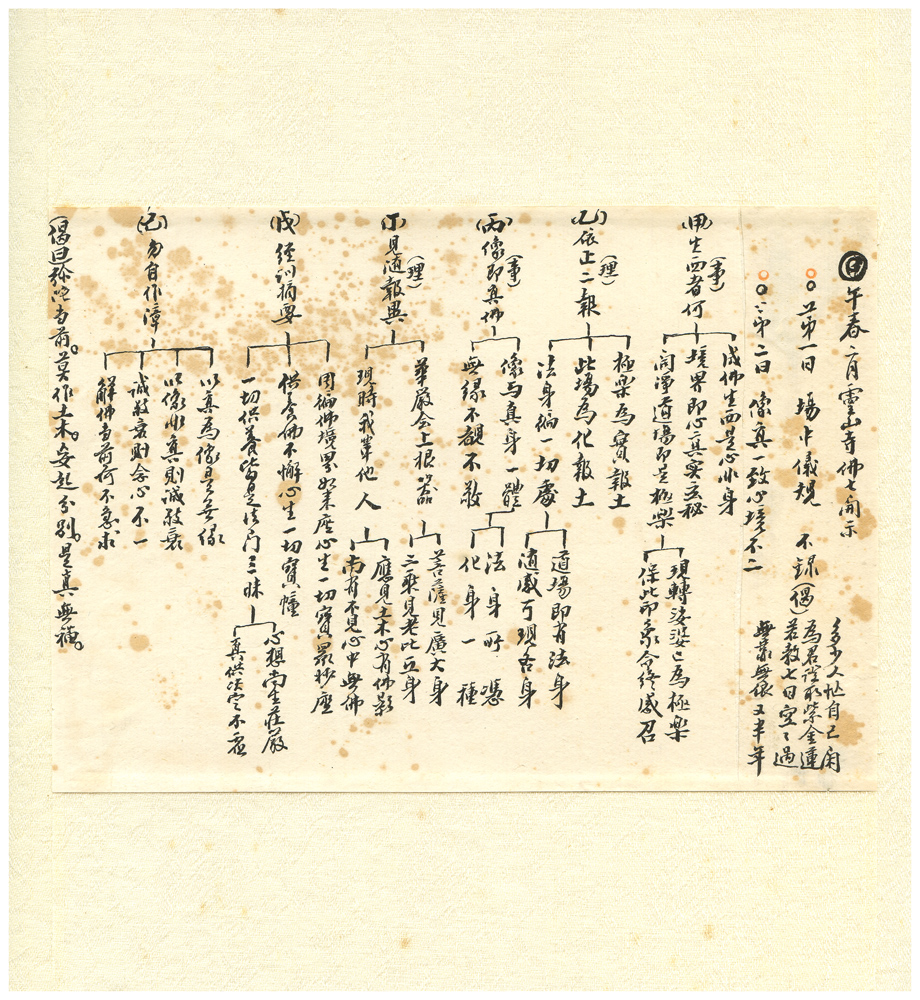 午春二月靈山寺佛七開示
第一日 場中儀規 不錄(偈)
多少人忙自己閑
為君證取紫金蓮
若教七日空々過
無義無依又半年
第二日 像真一致心境不二
(甲)生西者何(事)
成佛生西是心非身
境界即心真實玄秘
同淨道場即是極樂
現轉娑婆已為極樂
保此印象命終感召
(乙)依正二報(理)
極樂為實報土
此場為化報土
法身徧一切處
道場即有法身
隨感可現各身
(丙)像即真佛(事)
像與真身一體
無緣不覩不敬
法身所憑
化身一種
(丁)見隨報異(理)
華嚴会上根器
現時我輩他人
菩薩見廣大身
二乘見老比丘身
應見土木心有佛影
南有不見心中無佛
(戊)經訓摘要
因徧佛境界如来座心生一切寶眾妙座
供舍佛不懈心生一切寶幢
一切供養皆是法门三昧
心想尚生莊嚴
真供從定不虛
(己)勿自作障
以真為像是無緣
以像非真則誠敬衰
誠敬衰則念心不一
解佛当前何不急求
(偈曰)弥陀当前。莫作土木。妄起分別。是真無種。